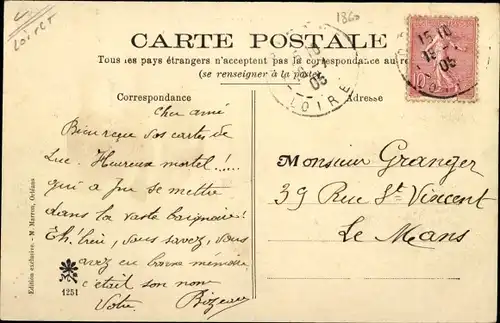 Loiret
1860
CARTE POSTALE
Tous les pays étrangers n'acceptent pas la correspondance au
(se renseigner à la poste)
Correspondance
Adresse
15 10
05
LOIRET
15 10
05
10
Cher ami
Bien reçu vos cartes de
Luc. Heureux mortel!...
qui a pu se mettre
dans la vaste baignoire!
Eh! bien, vous savez, vous
avez eu bonne mémoire
c'était son nom
Votre
Monsieur Granger
39 Rue St Vincent
Le Mans
Edition exclusive. - M. Marron, Orléans
1251